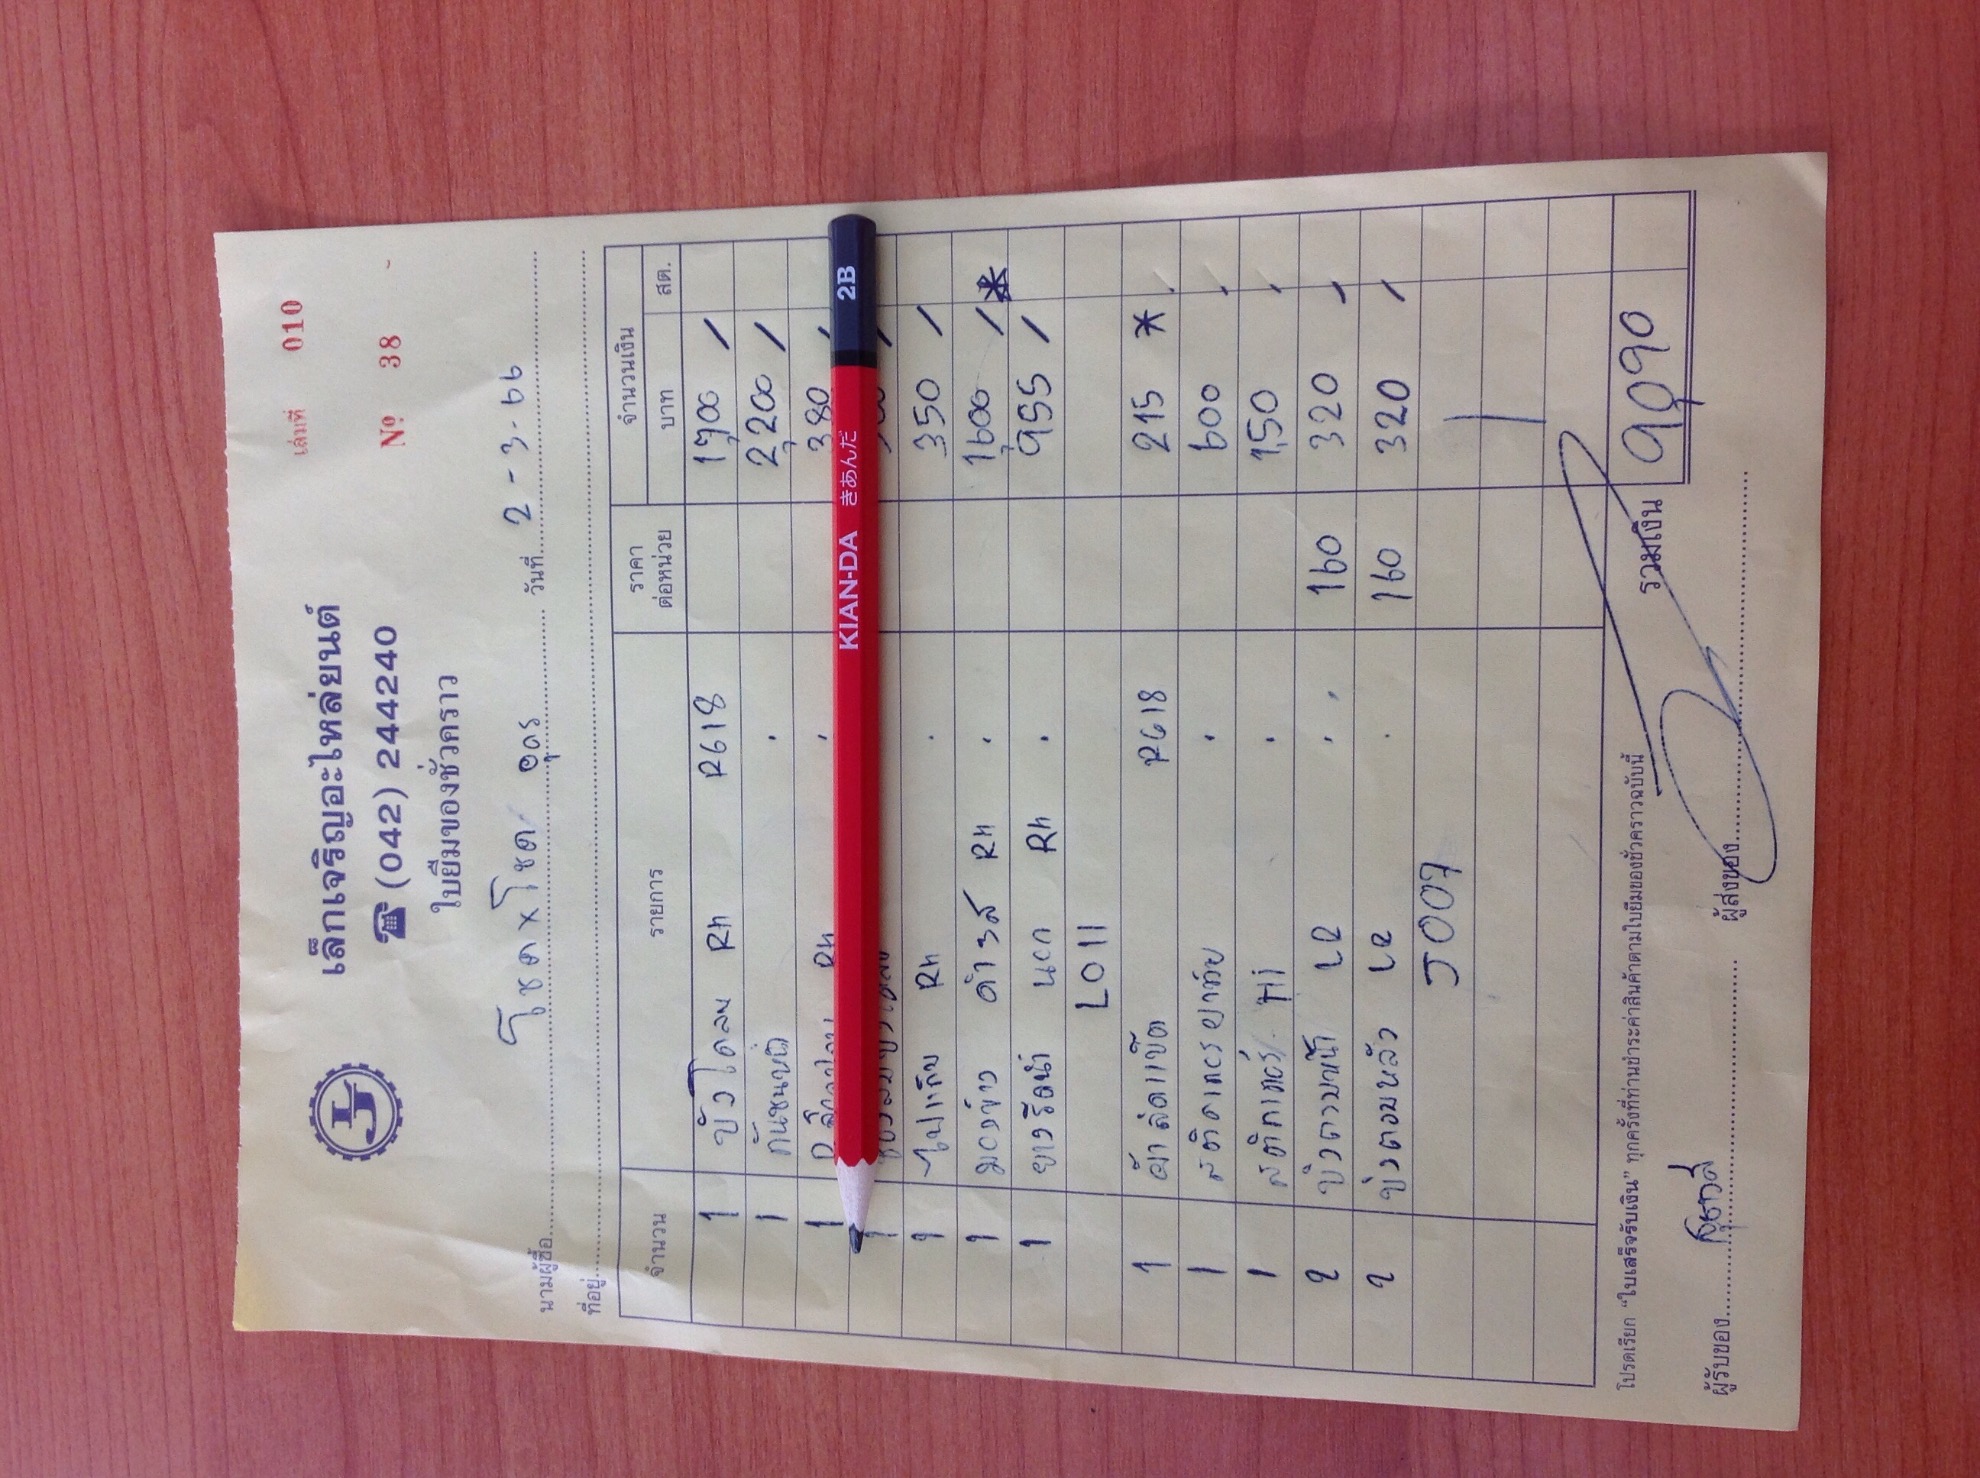 เล่มที่ 010
เล็กเจริญอะไหล่ยนต์
(042) 244240
Nº 38
ใบยืมของชั่วคราว
นามผู้ซื้อ โชค x โชค อุดร วันที่ 2-3-66
ที่อยู่
จำนวน รายการ ราคาต่อหน่วย จำนวนเงิน
บาท สต.
1 บังโคลน Rh R618 1,700 /
1 กันชนหน้า 2,200 /
1 Rh 380 /
KIAN-DA きあんだ 2B
1
1 ไฟแก้ม Rh 350 /
1 มองข้าง Rh 1,600 / *
1 ยางรีดน้ำ นอก Rh 955 /
L011
1 R618 215 *
1 สติกเกอร์ 600
1 สติกเกอร์ 150
2 LR 160 320 /
2 หลัง LR 160 320 /
J007
รวมเงิน 9,090
โปรดเรียก "ใบเสร็จรับเงิน" ทุกครั้งที่ท่านชำระค่าสินค้าตามใบยืมของชั่วคราวฉบับนี้
ผู้รับของ ผู้ส่งของ